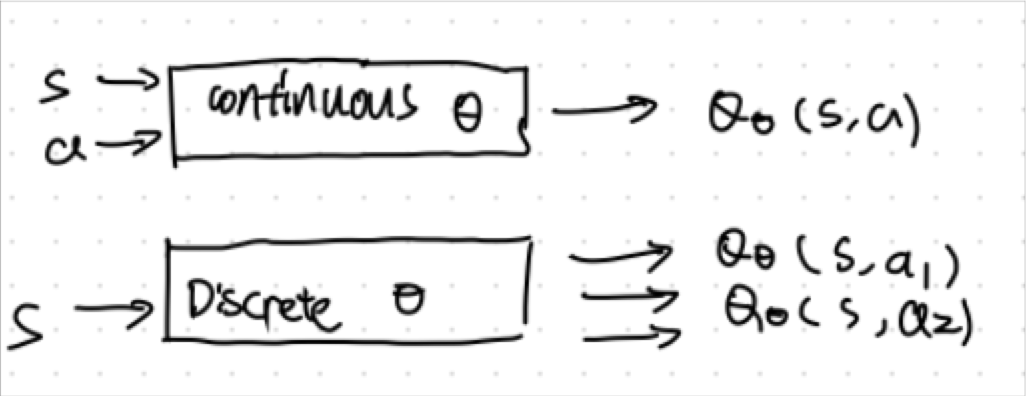 s → continuous θ → Qθ (s,a)
a →
s → Discrete θ → Qθ (s,a₁)
→ Qθ (s,a₂)
→